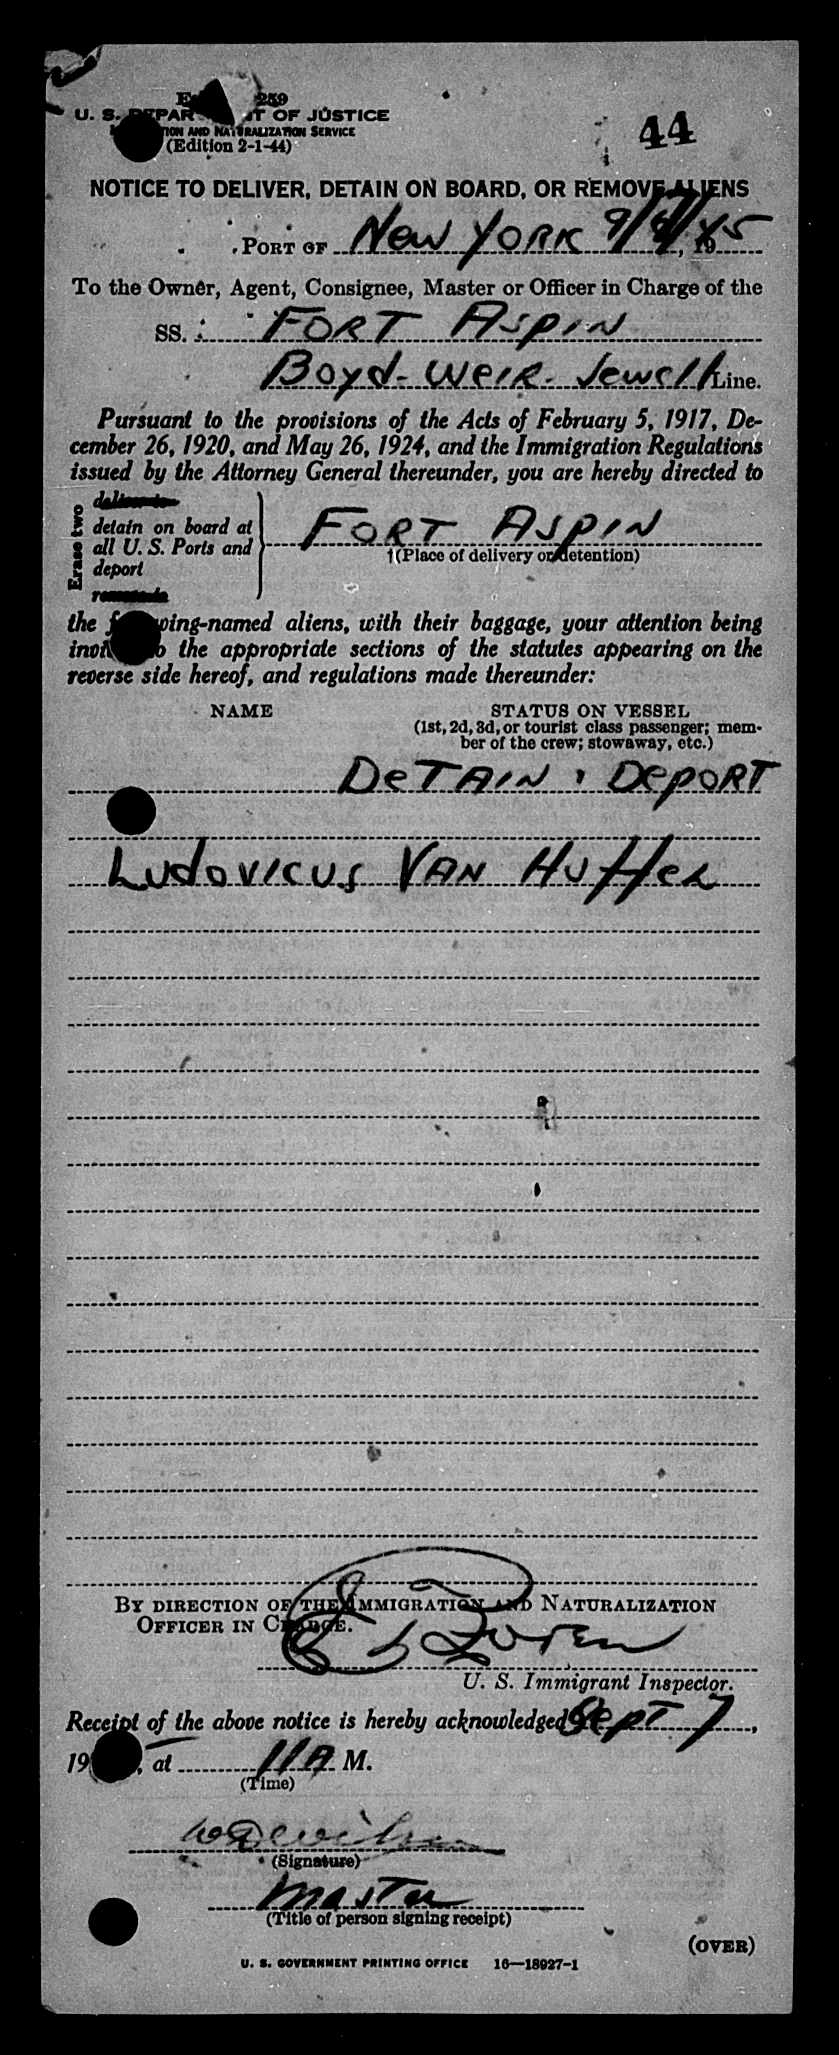 259
U. S. DEPARTMENT OF JUSTICE
IMMIGRATION AND NATURALIZATION SERVICE
(Edition 2-1-44)
44
NOTICE TO DELIVER, DETAIN ON BOARD, OR REMOVE ALIENS
PORT OF New YORK 9/7/45, 19
To the Owner, Agent, Consignee, Master or Officer in Charge of the
SS. FORT ASPIN
Boyd-Weir-Jewell Line.
Pursuant to the provisions of the Acts of February 5, 1917, De-
cember 26, 1920, and May 26, 1924, and the Immigration Regulations
issued by the Attorney General thereunder, you are hereby directed to
Erase two
detain on board at
all U. S. Ports and
deport
FORT ASPIN
†(Place of delivery or detention)
the following-named aliens, with their baggage, your attention being
invited to the appropriate sections of the statutes appearing on the
reverse side hereof, and regulations made thereunder:
NAME STATUS ON VESSEL
(1st, 2d, 3d, or tourist class passenger; mem-
ber of the crew; stowaway, etc.)
DETAIN & DEPORT
LUDOVICUS VAN HUFFEL
BY DIRECTION OF THE IMMIGRATION AND NATURALIZATION
OFFICER IN CHARGE.
U. S. Immigrant Inspector.
Receipt of the above notice is hereby acknowledged Sept 7,
19 , at 11 A M.
(Time)
(Signature)
Master
(Title of person signing receipt)
(OVER)
U. S. GOVERNMENT PRINTING OFFICE 16—18927-1